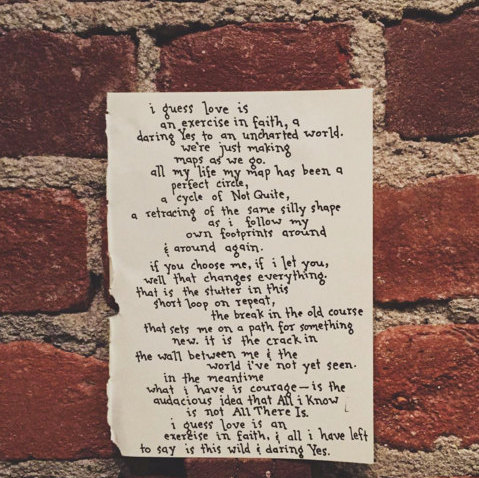 i guess love is
an exercise in faith, a
daring Yes to an uncharted world.
we're just making
maps as we go.
all my life my map has been a
perfect circle,
a cycle of Not Quite,
a retracing of the same silly shape
as i follow my
own footprints around
& around again.
if you choose me, if i let you,
well that changes everything.
that is the stutter in this
short loop on repeat,
the break in the old course
that sets me on a path for something
new. it is the crack in
the wall between me & the
world i've not yet seen.
in the meantime
what i have is courage—is the
audacious idea that All i Know
is not All There Is.
i guess love is an
exercise in faith, & all i have left
to say is this wild & daring Yes.